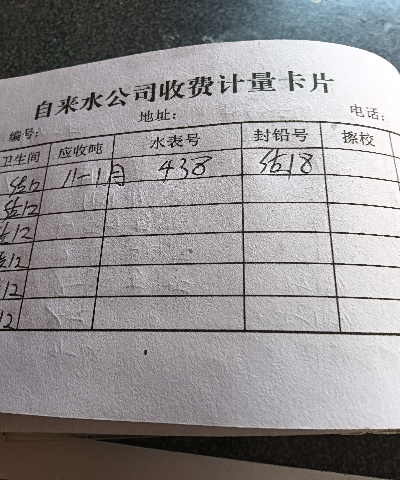 自来水公司收费计量卡片
编号: 地址: 电话:
卫生间 应收吨 水表号 封铅号 擦校
结12 11-1月 438 结18
结12
12
12
12
12